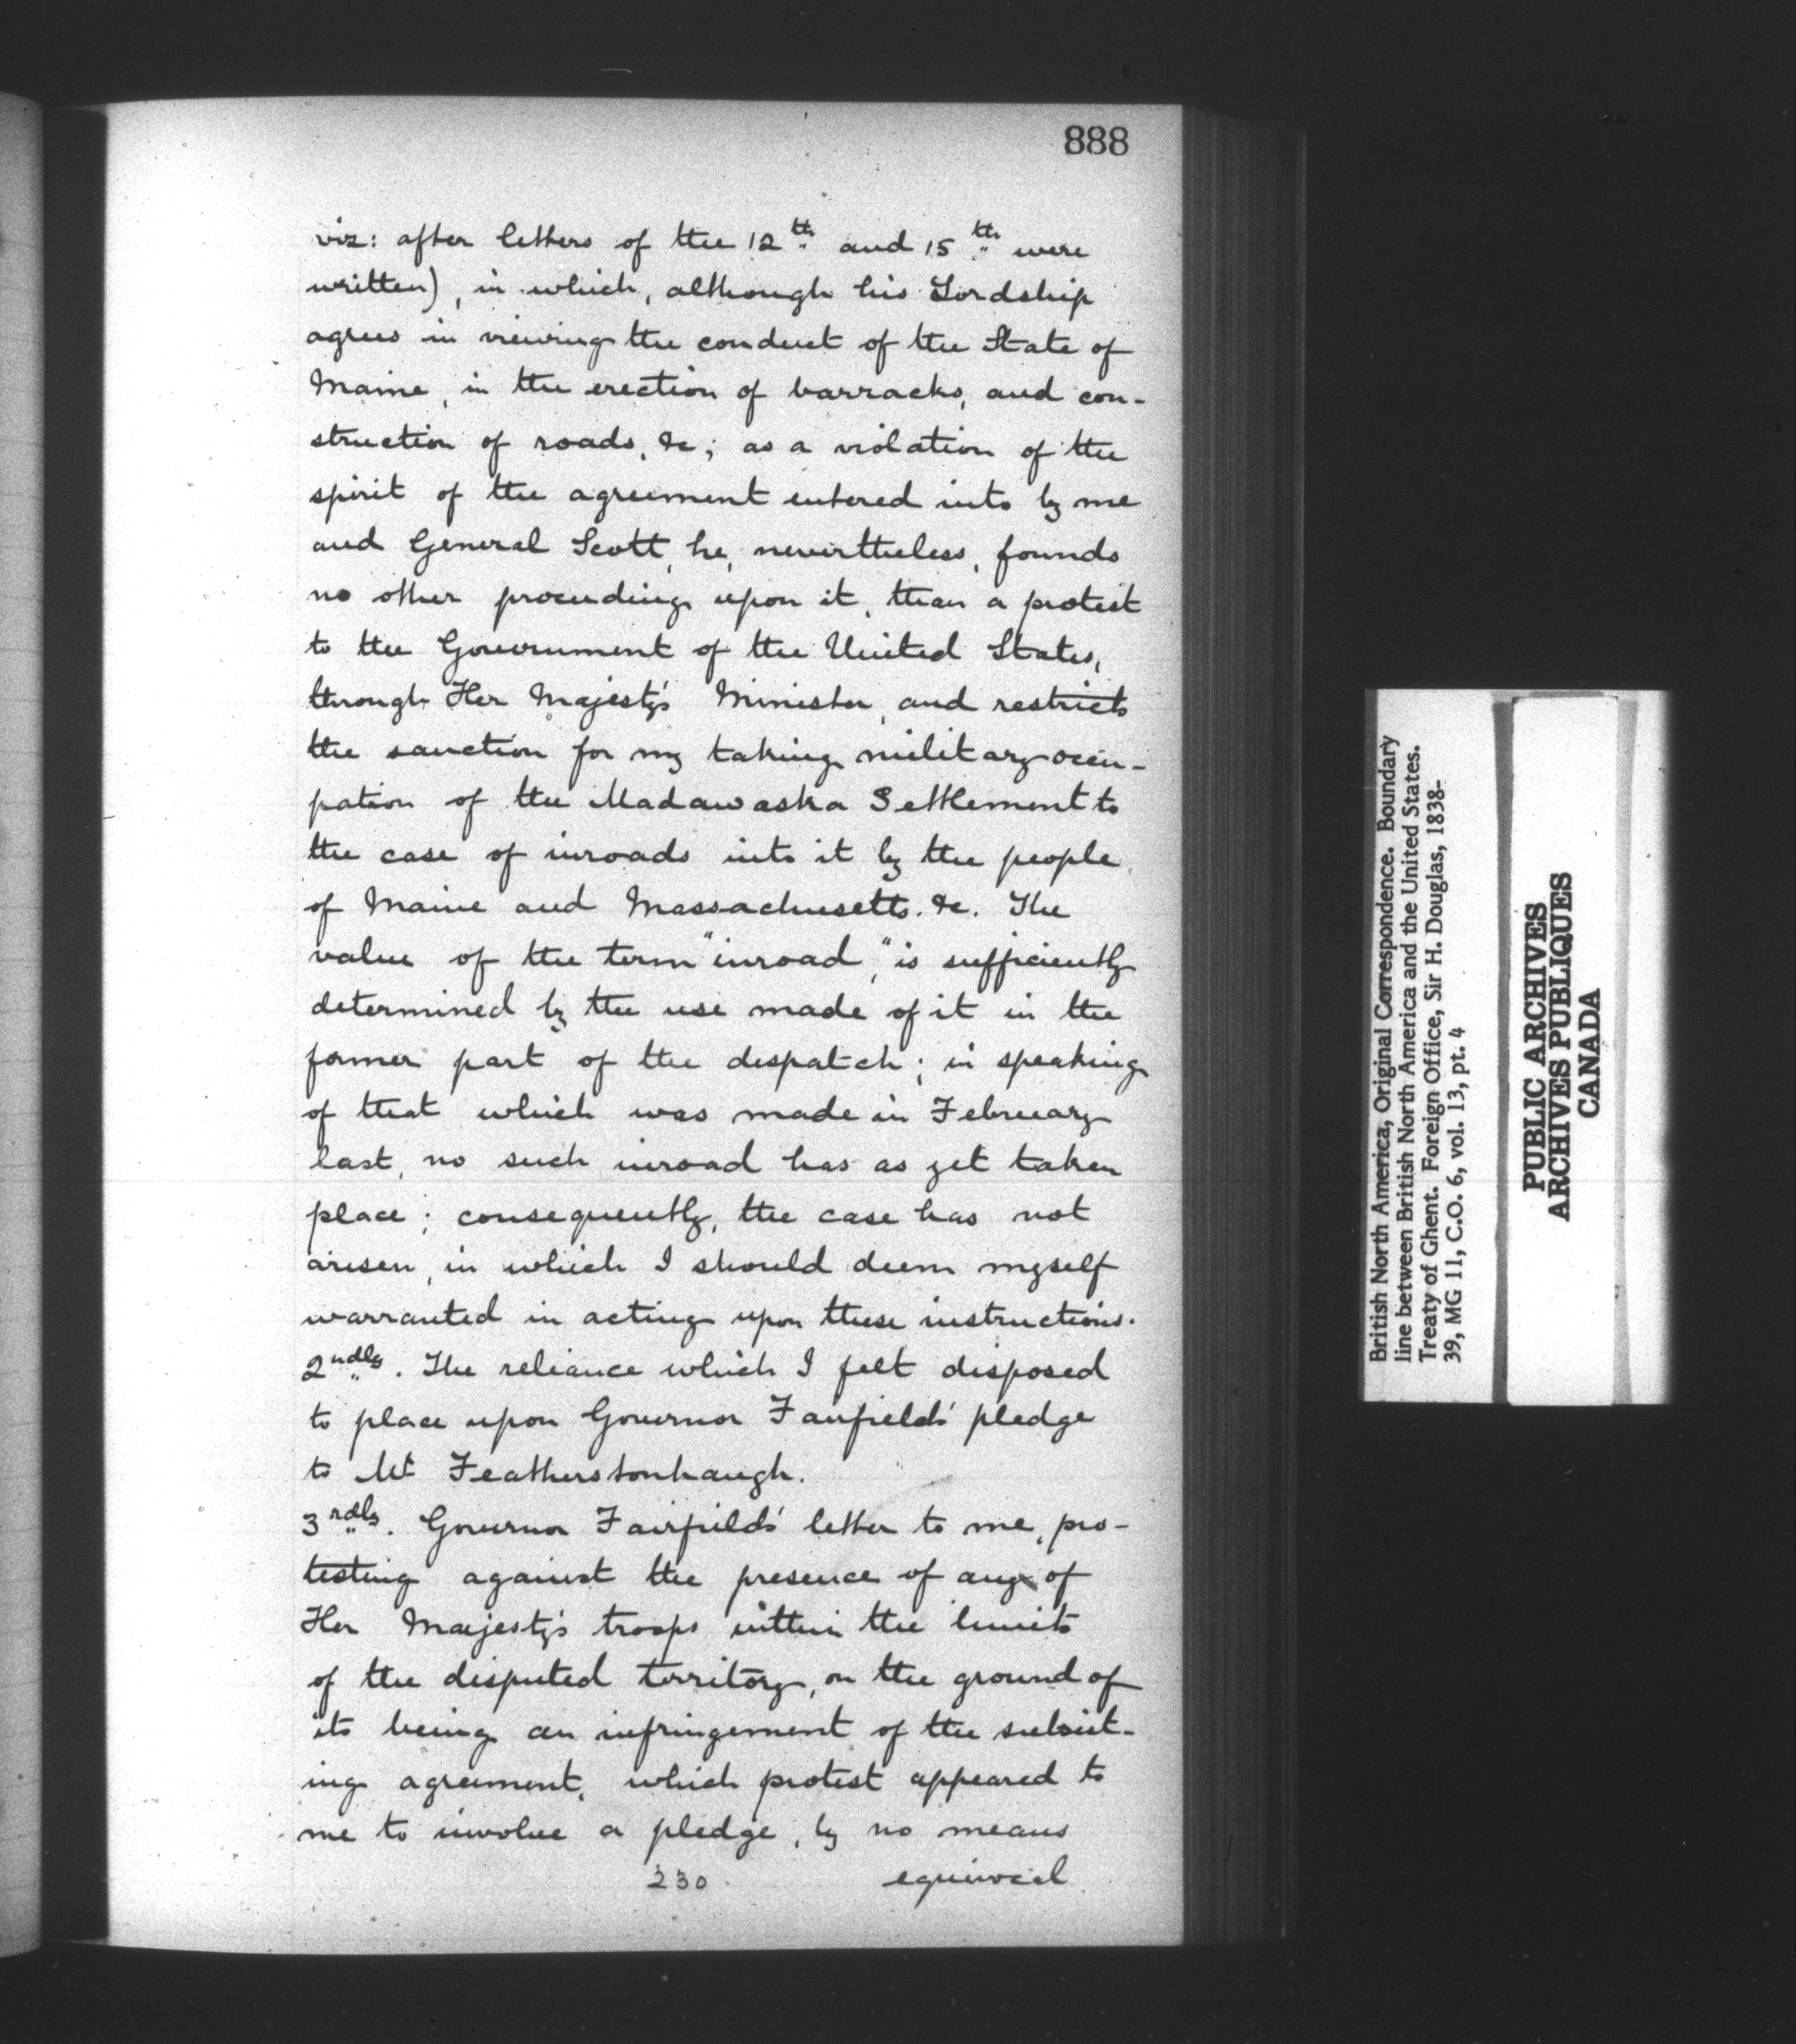 888
viz: after letters of the 12th and 15th were
written), in which, although his Lordship
agrees in viewing the conduct of the State of
Maine, in the erection of barracks, and con-
struction of roads, &c; as a violation of the
spirit of the agreement entered into by me
and General Scott, he, nevertheless, founds
no other proceeding upon it, than a protest
to the Government of the United States,
through Her Majesty's Minister, and restricts
the sanction for my taking military occu-
pation of the Madawaska Settlement to
the case of inroads into it by the people
of Maine and Massachusetts. &c. The
value of the term "inroad," is sufficiently
determined by the use made of it in the
former part of the despatch; in speaking
of that which was made in February
last, no such inroad has as yet taken
place; consequently, the case has not
arisen, in which I should deem myself
warranted in acting upon these instructions.
2ndly. The reliance which I felt disposed
to place upon Governor Fairfield's pledge
to Mr Featherstonhaugh.
3rdly. Governor Fairfield's letter to me, pro-
testing against the presence of any of
Her Majesty's troops within the limits
of the disputed territory, on the ground of
its being an infringement of the subsist-
ing agreement, which protest appeared to
me to involve a pledge, by no means
230 equivocal
British North America, Original Correspondence. Boundary
line between British North America and the United States.
Treaty of Ghent. Foreign Office, Sir H. Douglas, 1838-
39, MG 11, C.O. 6, vol. 13, pt. 4
PUBLIC ARCHIVES
ARCHIVES PUBLIQUES
CANADA